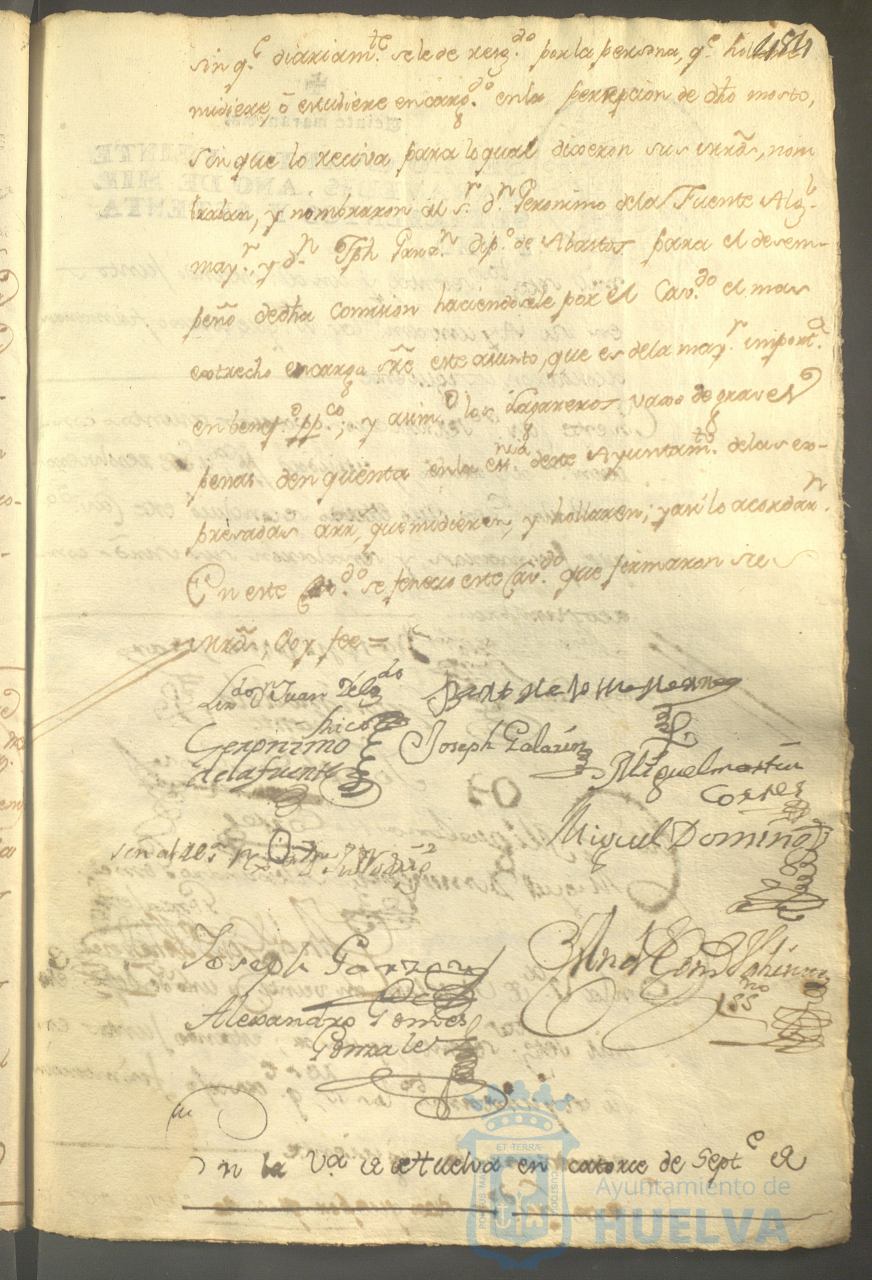 484
sin q.e diariam.te se le de resg.do por la persona, q.e hu
midiere, ô estubiere encarg.do en la percepcion de dho mosto,
sin que lo reciva para lo qual dixeron sus mrds, nom
braban, y nombraron al s.r d.n Geronimo de la Fuente Alg.l
may.r y d.n Jph Garz.n dip.o de Abastos para el desem-
peño de dha comision haciendosele por el Cav.do el mas
extrecho encargo sre este asunto, que es de la may.r import.a
en benef.o pp.co; y asim.o los Lagareros vaxo de graves
penas den quenta en la ess.nia de este Ayuntam.to de las ex-
presadas arr, que midieren, y hollaren; y asi lo acordar.n
En este Cav.do se fenecio este Cav.do que firmaron sus
mrds Doy fee=
Lin.do d.n Juan Delg.do
chico
Geronimo
de la fuente
Joseph Galavin
Miguel martin
Cortes
Miguel Domin.o
señal de
Joseph Garzon
Alexandro Gomes
Gonzales
ss.no
En la V.a de Huelva en catorce de Sept.e de
ET TERRÆ
PORTUS MARIS
CUSTODIA
Ayuntamiento de
HUELVA